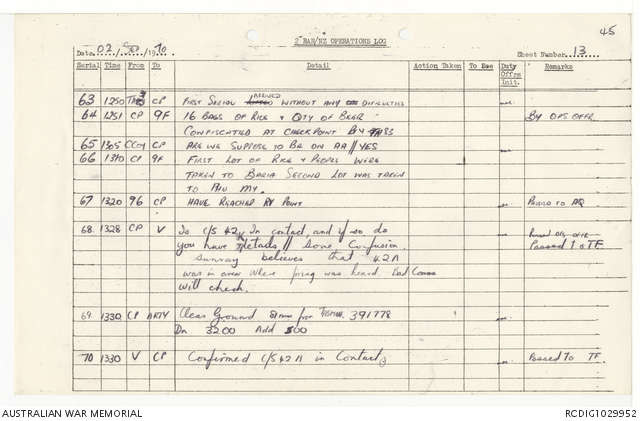 45
2 RAR/NZ OPERATIONS LOG
Date 02/ /1970 Sheet Number 13
Serial Time From To Detail Action Taken To See Duty Offrs Init. Remarks
63 1250 CP FIRST SERIAL ARRIVED WITHOUT ANY DIFFICULTIES
64 1251 CP 9F 16 BAGS OF RICE & QTY OF BEER BY OPS OFFR
CONFISCATED AT CHECKPOINT BY
65 1305 CCOY CP ARE WE SUPPOSE TO BE ON AR // YES
66 1310 CP 9F FIRST LOT OF RICE & PEOPLE WERE
TAKEN TO BARIA SECOND LOT WAS TAKEN
TO PHU MY.
67 1320 96 CP HAVE REACHED RV POINT Passed to
68 1328 CP V Is C/S 42 In contact and if so do
you have details // Some Confusion Passed to TF
sunray believes that 42A
was in area where firing was heard
will check.
69 1330 CP ARTY Clear Ground from 391778
Dn 3200 Add 500
70 1330 V CP Confirmed C/S 42A in Contact Passed To TF
AUSTRALIAN WAR MEMORIAL RCDIG1029952